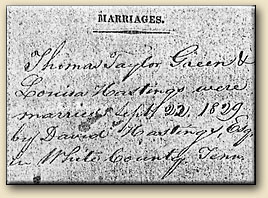 MARRIAGES.
Thomas Taylor Green &
Louisa Hastings were
married Sept 22, 1829
by David Hastings, Esq
in White County Tenn